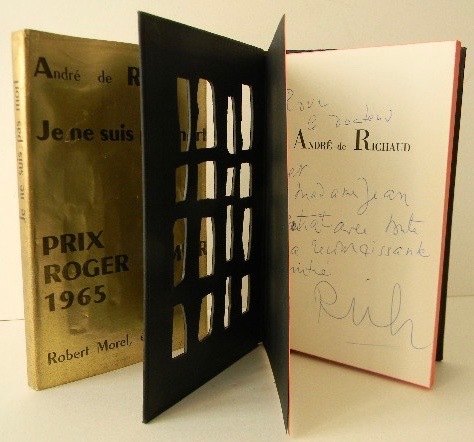 Je ne suis pas mort
André de R
Je ne suis p mort
PRIX
ROGER
1965
Robert Morel,
Pour
le Docteur
ANDRÉ de RICHAUD
et
madame Jean
avec toute
a reconnaissante